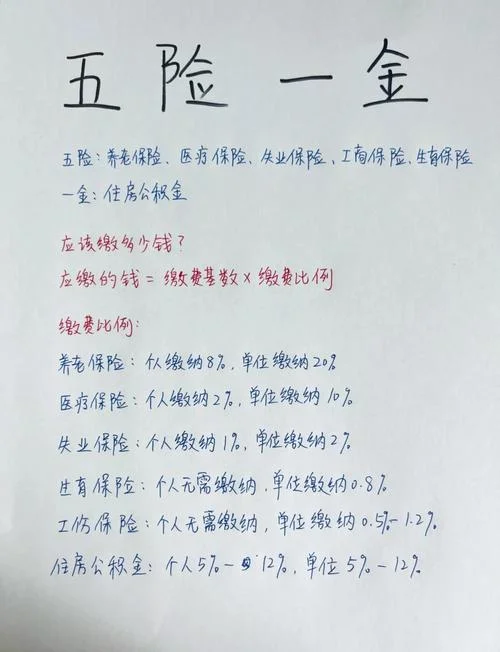 五险一金
五险：养老保险、医疗保险、失业保险、工商保险、生育保险
一金：住房公积金
应该缴多少钱？
应缴的钱＝缴费基数×缴费比例
缴费比例：
养老保险：个人缴纳8%，单位缴纳20%
医疗保险：个人缴纳2%，单位缴纳10%
失业保险：个人缴纳1%，单位缴纳2%
生育保险：个人无需缴纳，单位缴纳0.8%
工伤保险：个人无需缴纳，单位缴纳0.5%-1.2%
住房公积金：个人5%-12%，单位5%-12%